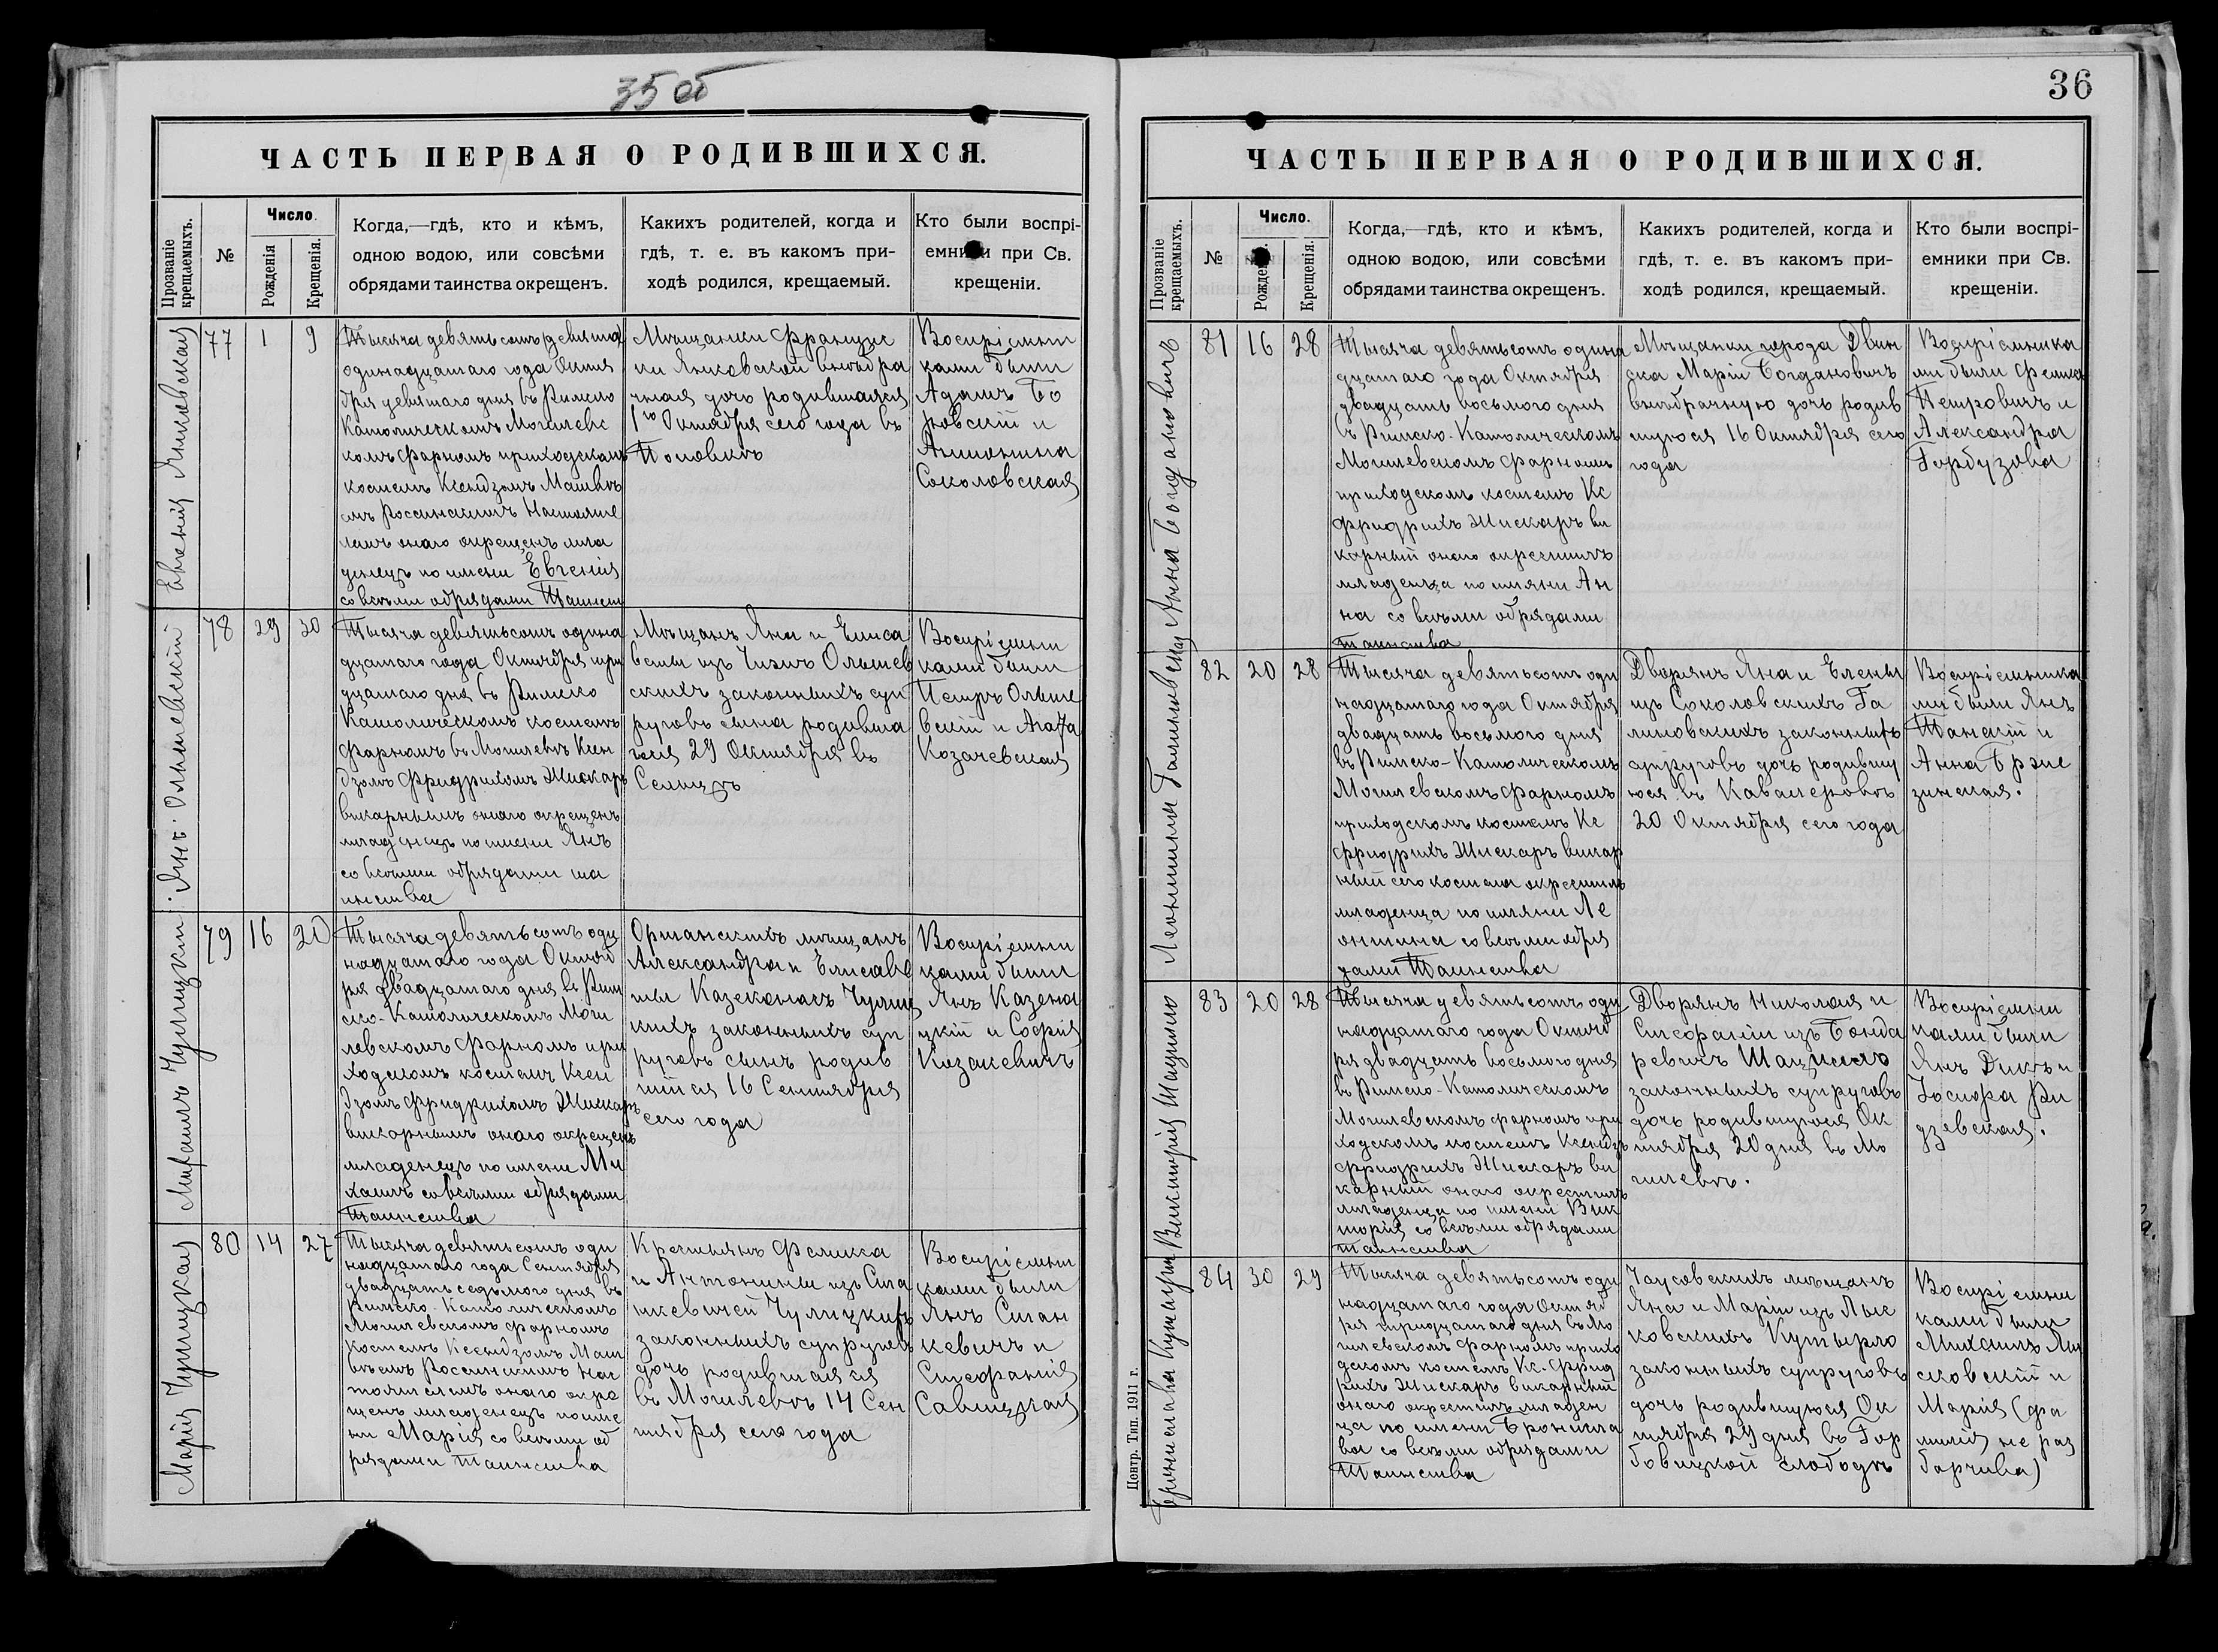 35 об
ЧАСТЬ ПЕРВАЯ О РОДИВШИХСЯ.
Прозваніе крещаемыхъ.
№
Число.
Рожденія
Крещенія.
Когда,—гдѣ, кто и кѣмъ,
одною водою, или совсѣми
обрядами таинства окрещенъ.
Какихъ родителей, когда и
гдѣ, т. е. въ какомъ при-
ходѣ родился, крещаемый.
Кто были воспрі-
емники при Св.
крещеніи.
Евгенія Янковская
77
1
9
Тысяча девятьсотъ
одинадцатаго года Октя
бря девятаго дня въ Римско
Католическомъ Могилевс
комъ фарномъ приходскомъ
костелѣ Ксендзомъ
Настояте
лемъ онаго окрещенъ мла
денецъ по имени Евгенія
со всѣми обрядами Таинств
Мѣщанки Францис
ки Янковской внѣбра
чная дочь родившаяся
1го Октября сего года въ
Половкѣ
Воспріемни
ками были
Адамъ Бо
ровскій и
Антонина
Соколовская
Янъ Ольшевскій
78
29
30
Тысяча девятьсотъ одина
дцатаго года Октября три
дцатаго дня въ Римско
Католическомъ костелѣ
фарномъ въ Могилевѣ Ксен
дзомъ Фридрихомъ Жискаръ
викарнымъ онаго окрещенъ
младенецъ по имени Янъ
со всѣми обрядами та
инства
Мѣщанъ Яна и Елиса
веты изъ Ольшев
скихъ законныхъ суп
руговъ сына родивша
гося 29 Октября въ
Сельцѣ
Воспріемни
ками были
Петръ Ольше
вскій и Агафа
Козачевская
Михаилъ Чулицкій
79
16
20
Тысяча девятьсотъ оди
надцатаго года Октяб
ря двадцатаго дня въ Рим
ско-Католическомъ Моги
левскомъ фарномъ при
ходскомъ костелѣ Ксен
дзомъ Фридрихомъ Жискаръ
викарнымъ онаго окрещенъ
младенецъ по имени Ми
хаилъ со всѣми обрядами
Таинства
Оршанскихъ мѣщанъ
Александра и Елисаве
ты Чулиц
кихъ законныхъ суп
руговъ сынъ родив
шійся 16 Сентября
сего года
Воспріемни
ками были
Янъ Казена
цкій и Софія
Казакевичъ
Марія Чулицкая
80
14
27
Тысяча девятьсотъ оди
надцатаго года Сентября
двадцать седьмого дня въ
Римско-Католическомъ
Могилевскомъ фарномъ
костелѣ Ксендзомъ
Нас
тоятелемъ онаго окре
щенъ младенецъ по име
ни Марія со всѣми об
рядами таинства
Крестьянъ Феликса
и Антонины изъ Ста
нкевичей Чулицкихъ
законныхъ супруговъ
дочь родившаяся
въ Могилевѣ 14 Сен
тября сего года
Воспріемни
ками были
Янъ Стан
кевичъ и
Стефанія
Савицкая
36
ЧАСТЬ ПЕРВАЯ О РОДИВШИХСЯ.
Прозваніе крещаемыхъ.
№
Число.
Рожденія.
Крещенія.
Когда,—гдѣ, кто и кѣмъ,
одною водою, или совсѣми
обрядами таинства окрещенъ.
Какихъ родителей, когда и
гдѣ, т. е. въ какомъ при-
ходѣ родился, крещаемый.
Кто были воспрі-
емники при Св.
крещеніи.
Анна Богдановичъ
81
16
28
Тысяча девятьсотъ одина
дцатаго года Октября
двадцать восьмого дня
въ Римско-Католическомъ
Могилевскомъ фарномъ
приходскомъ костелѣ Кс
Фридрихъ Жискаръ ви
карный онаго окрестилъ
младенца по имяни Ан
на со всѣми обрядами
таинства
Мѣщанки города Двин
ска Маріи Богдановичъ
внѣбрачную дочь родив
шуюся 16 Октября сего
года
Воспріемника
ми были Феликсъ
Петровичъ и
Александра
Горбузова
Леонтина Галиновская
82
20
28
Тысяча девятьсотъ оди
надцатаго года Октября
двадцать восьмого дня
въ Римско-Католическомъ
Могилевскомъ фарномъ
приходскомъ костелѣ Кс
Фридрихъ Жискаръ викар
ный сего костела окрестилъ
младенца по имяни Ле
онтина со всѣми обря
дами Таинства
Дворянъ Яна и Елены
изъ Соколовскихъ Га
линовскихъ законныхъ
супруговъ дочь родившу
юся въ
20 Октября сего года
Воспріемника
ми были Янъ
Шанскій и
Анна Брзе
зинская.
Викторія Шацилло
83
20
28
Тысяча девятьсотъ оди
надцатаго года Октяб
ря двадцать восьмого дня
въ Римско-Католическомъ
Могилевскомъ фарномъ при
ходскомъ костелѣ Ксендзъ
Фридрихъ Жискаръ ви
карный онаго окрестилъ
младенца по имени Вик
торія со всѣми обрядами
таинства
Дворянъ Николая и
Стефаніи изъ Бонда
ревичъ Шацилло
законныхъ супруговъ
дочь родившуюся Ок
тября 20 дня въ Мо
гилевѣ.
Воспріемни
ками были
Янъ и
Іосифа Ри
дзевская.
Бронислава Кутырло
84
30
29
Тысяча девятьсотъ оди
надцатаго года Октяб
ря тридцатаго дня въ Мо
гилевскомъ фарномъ прихо
дскомъ костелѣ Кс. Фрид
рихъ Жискаръ викарный
онаго окрестилъ младен
ца по имени Бронисла
ва со всѣми обрядами
Таинства
Чаусовскихъ мѣщанъ
Яна и Маріи изъ Лис
ковскихъ Кутырло
законныхъ супруговъ
дочь родившуюся Ок
тября 29 дня въ Гор
бовицкой слободѣ
Воспріемни
ками были
Михаилъ Ли
сковскій и
Марія (фа
милія не раз
борчива)
Центр. Тип. 1911 г.